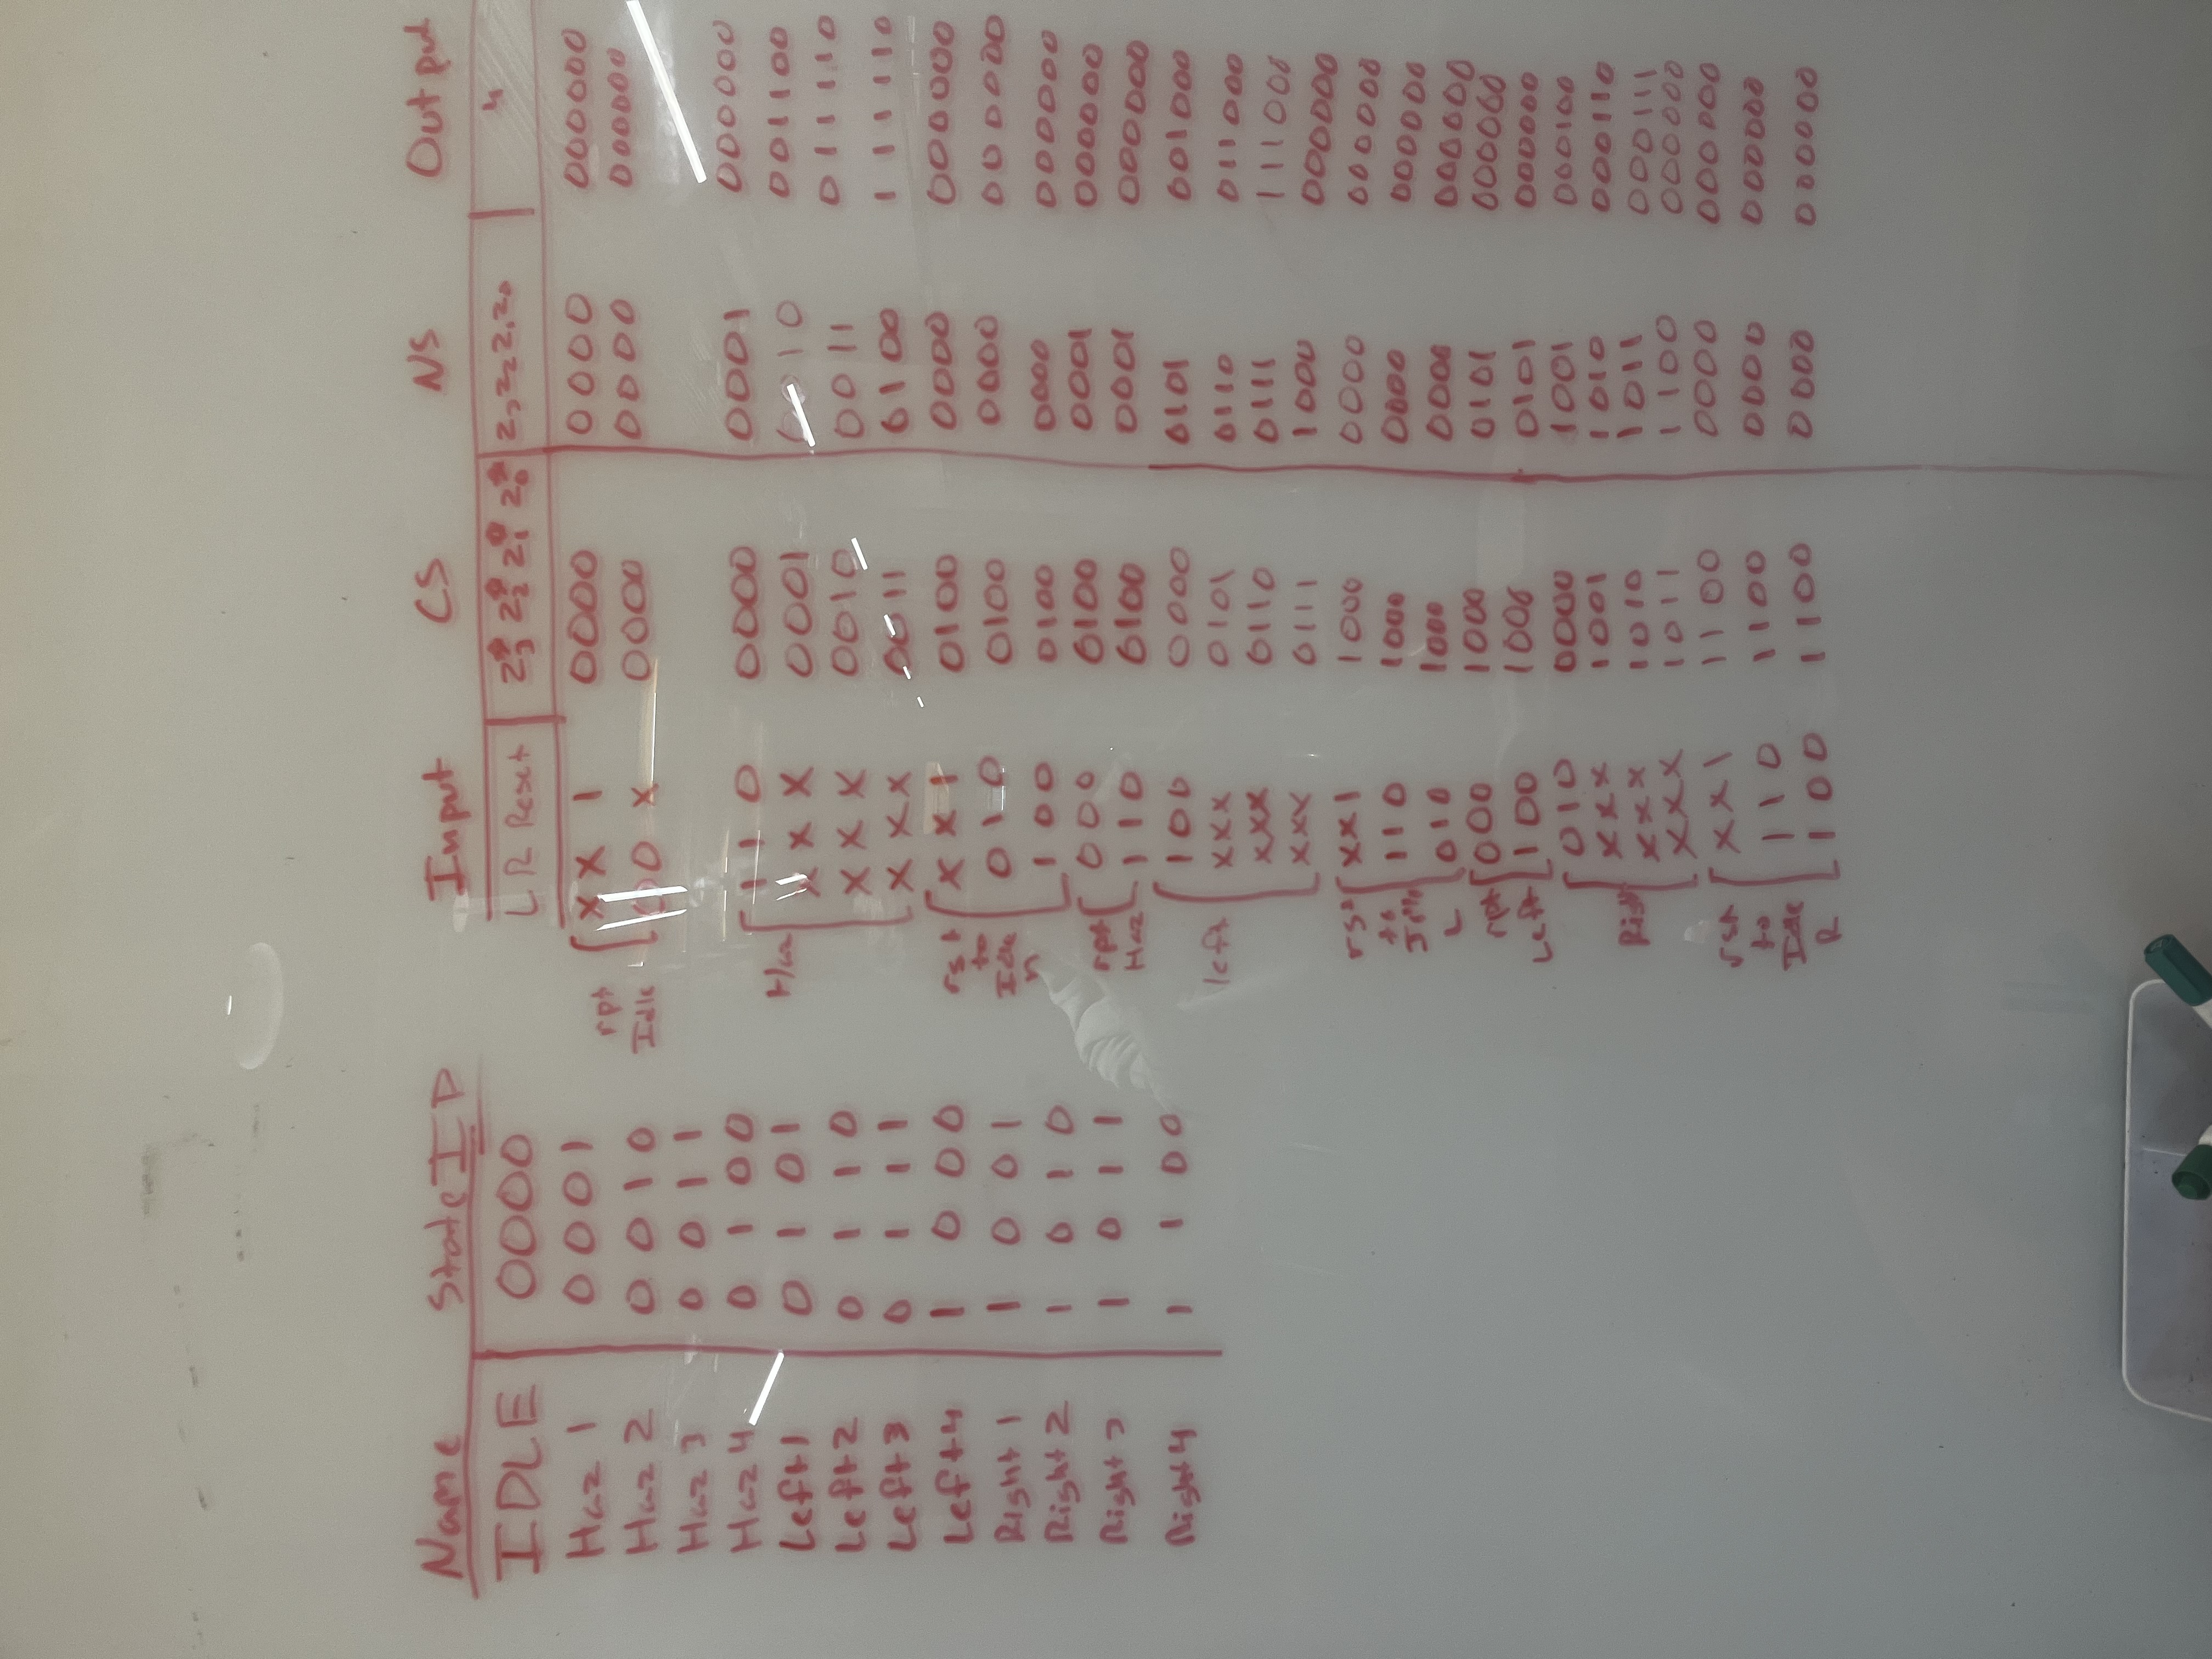 Name StateID
IDLE 0000
Haz 1 0001
Haz 2 0010
Haz 3 0011
Haz 4 0100
Left1 0101
Left2 0110
Left3 0111
Left4 1000
Right 1 1001
Right 2 1010
Right 3 1011
Right 4 1100
Input CS NS Output
L R Reset Z3* Z2* Z1* Z0* Z3 Z2 Z1 Z0
rpt Idle
X X 1 0000 0000 000000
0 0 X 0000 0000 000000
Haz
1 1 0 0000 0001 000000
X X X 0001 0010 001100
X X X 0010 0011 011110
X X X 0011 0100 111110
rst to Idle
X X 1 0100 0000 000000
0 1 0 0100 0000 000000
1 0 0 0100 0000 000000
rpt Haz
0 0 0 0100 0001 000000
1 1 0 0100 0001 000000
left
1 0 0 0000 0101 001000
X X X 0101 0110 011000
X X X 0110 0111 111000
X X X 0111 1000 000000
rst to L
X X 1 1000 0000 000000
1 1 0 1000 0000 000000
0 1 0 1000 0000 000000
rpt Left
0 0 0 1000 0101 000000
1 0 0 1000 0101 000000
Right
0 1 0 0000 1001 000100
X X X 1001 1010 000110
X X X 1010 1011 000111
X X X 1011 1100 000000
rst to Idle R
X X 1 1100 0000 000000
1 1 0 1100 0000 000000
1 0 0 1100 0000 000000